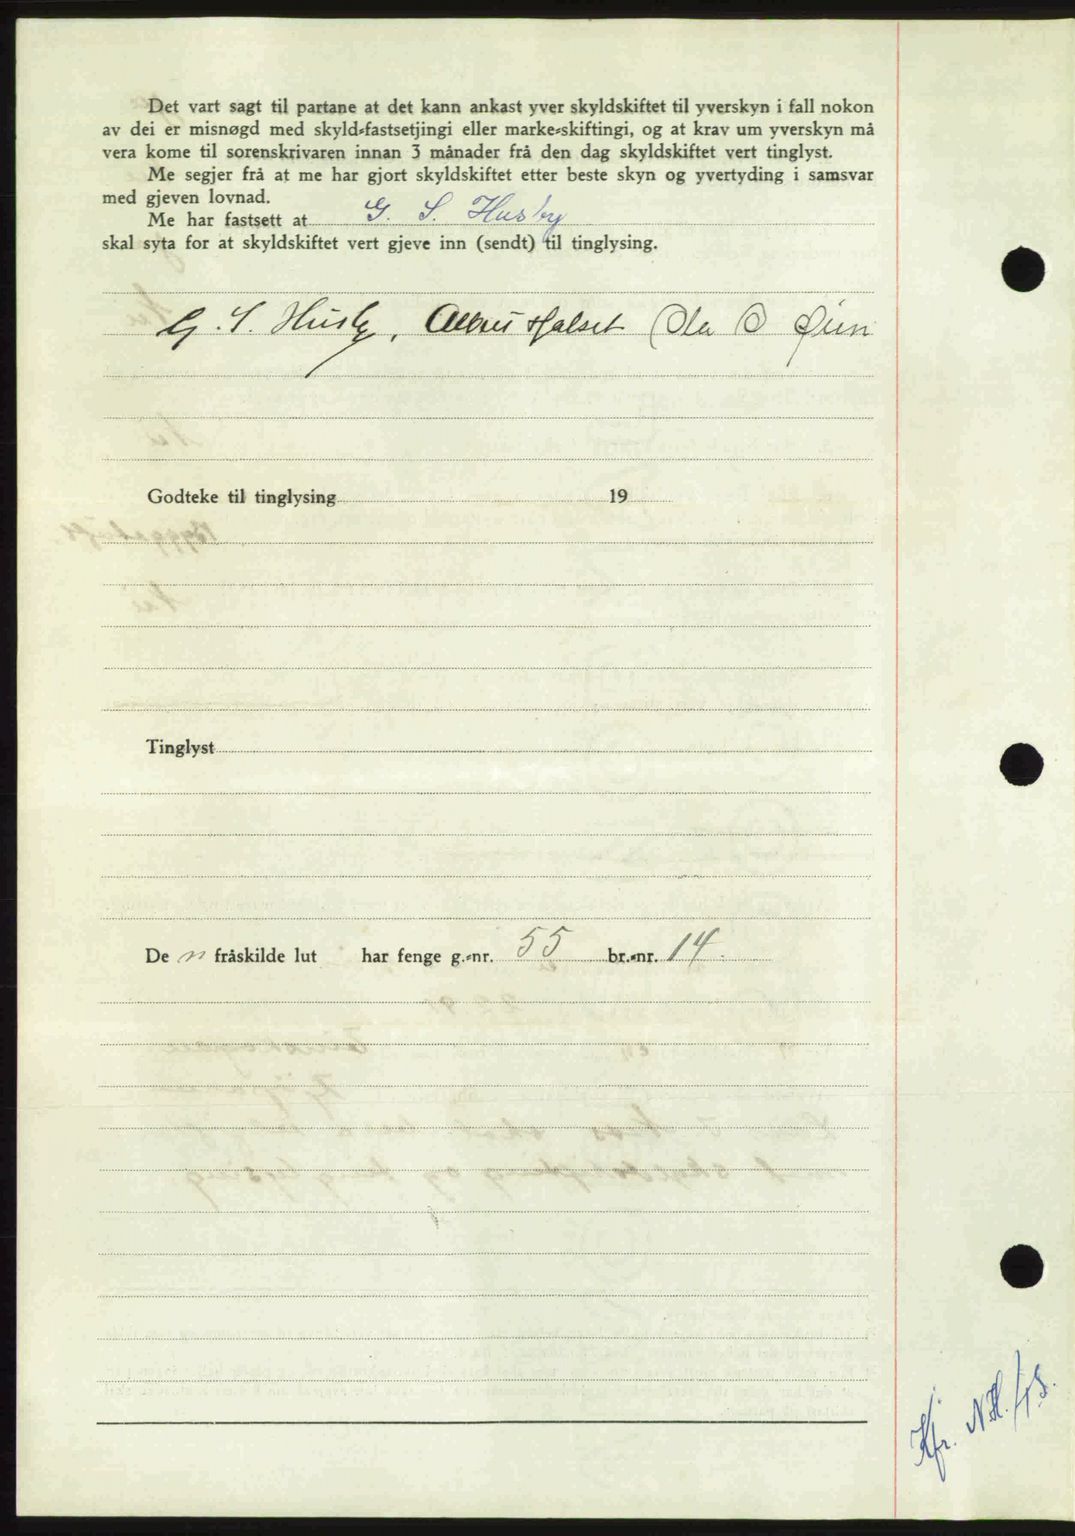 Det vart sagt til partane at det kann ankast yver skyldskiftet til yverskyn i fall nokon
av dei er misnøgd med skyld-fastsetjingi eller marke-skiftingi, og at krav um yverskyn må
vera kome til sorenskrivaren innan 3 månader frå den dag skyldskiftet vert tinglyst.
Me segjer frå at me har gjort skyldskiftet etter beste skyn og yvertyding i samsvar
med gjeven lovnad.
Me har fastsett at G. S. Husby
skal syta for at skyldskiftet vert gjeve inn (sendt) til tinglysing.
G. S. Husby, Halset Ola O Øien
Godteke til tinglysing 19
Tinglyst
De n fråskilde lut har fenge g.-nr. 55 br.-nr. 14.
Kfr.